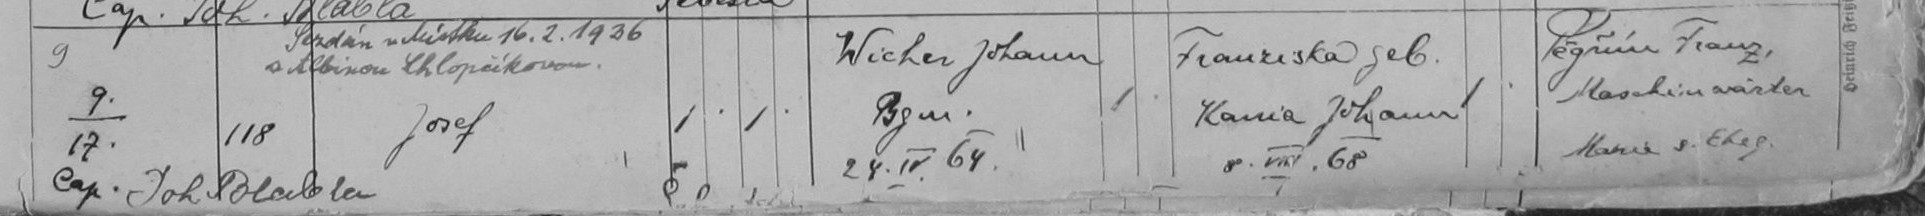 Cap. Joh. Blabla
9 Sezdán v Místku 16.2.1936 Wicher Johann Franziska geb. Pegřim Franz,
s Albinou Chlopčíkovou. Maschinwärter
9. 118 Josef 1 . 1 . Bgm. 1 . Kania Johann 1 .
17. 24. IV. 64. 8. VIII. 68 Marie s. Eheg.
Cap. Joh Blabla
Heinrich